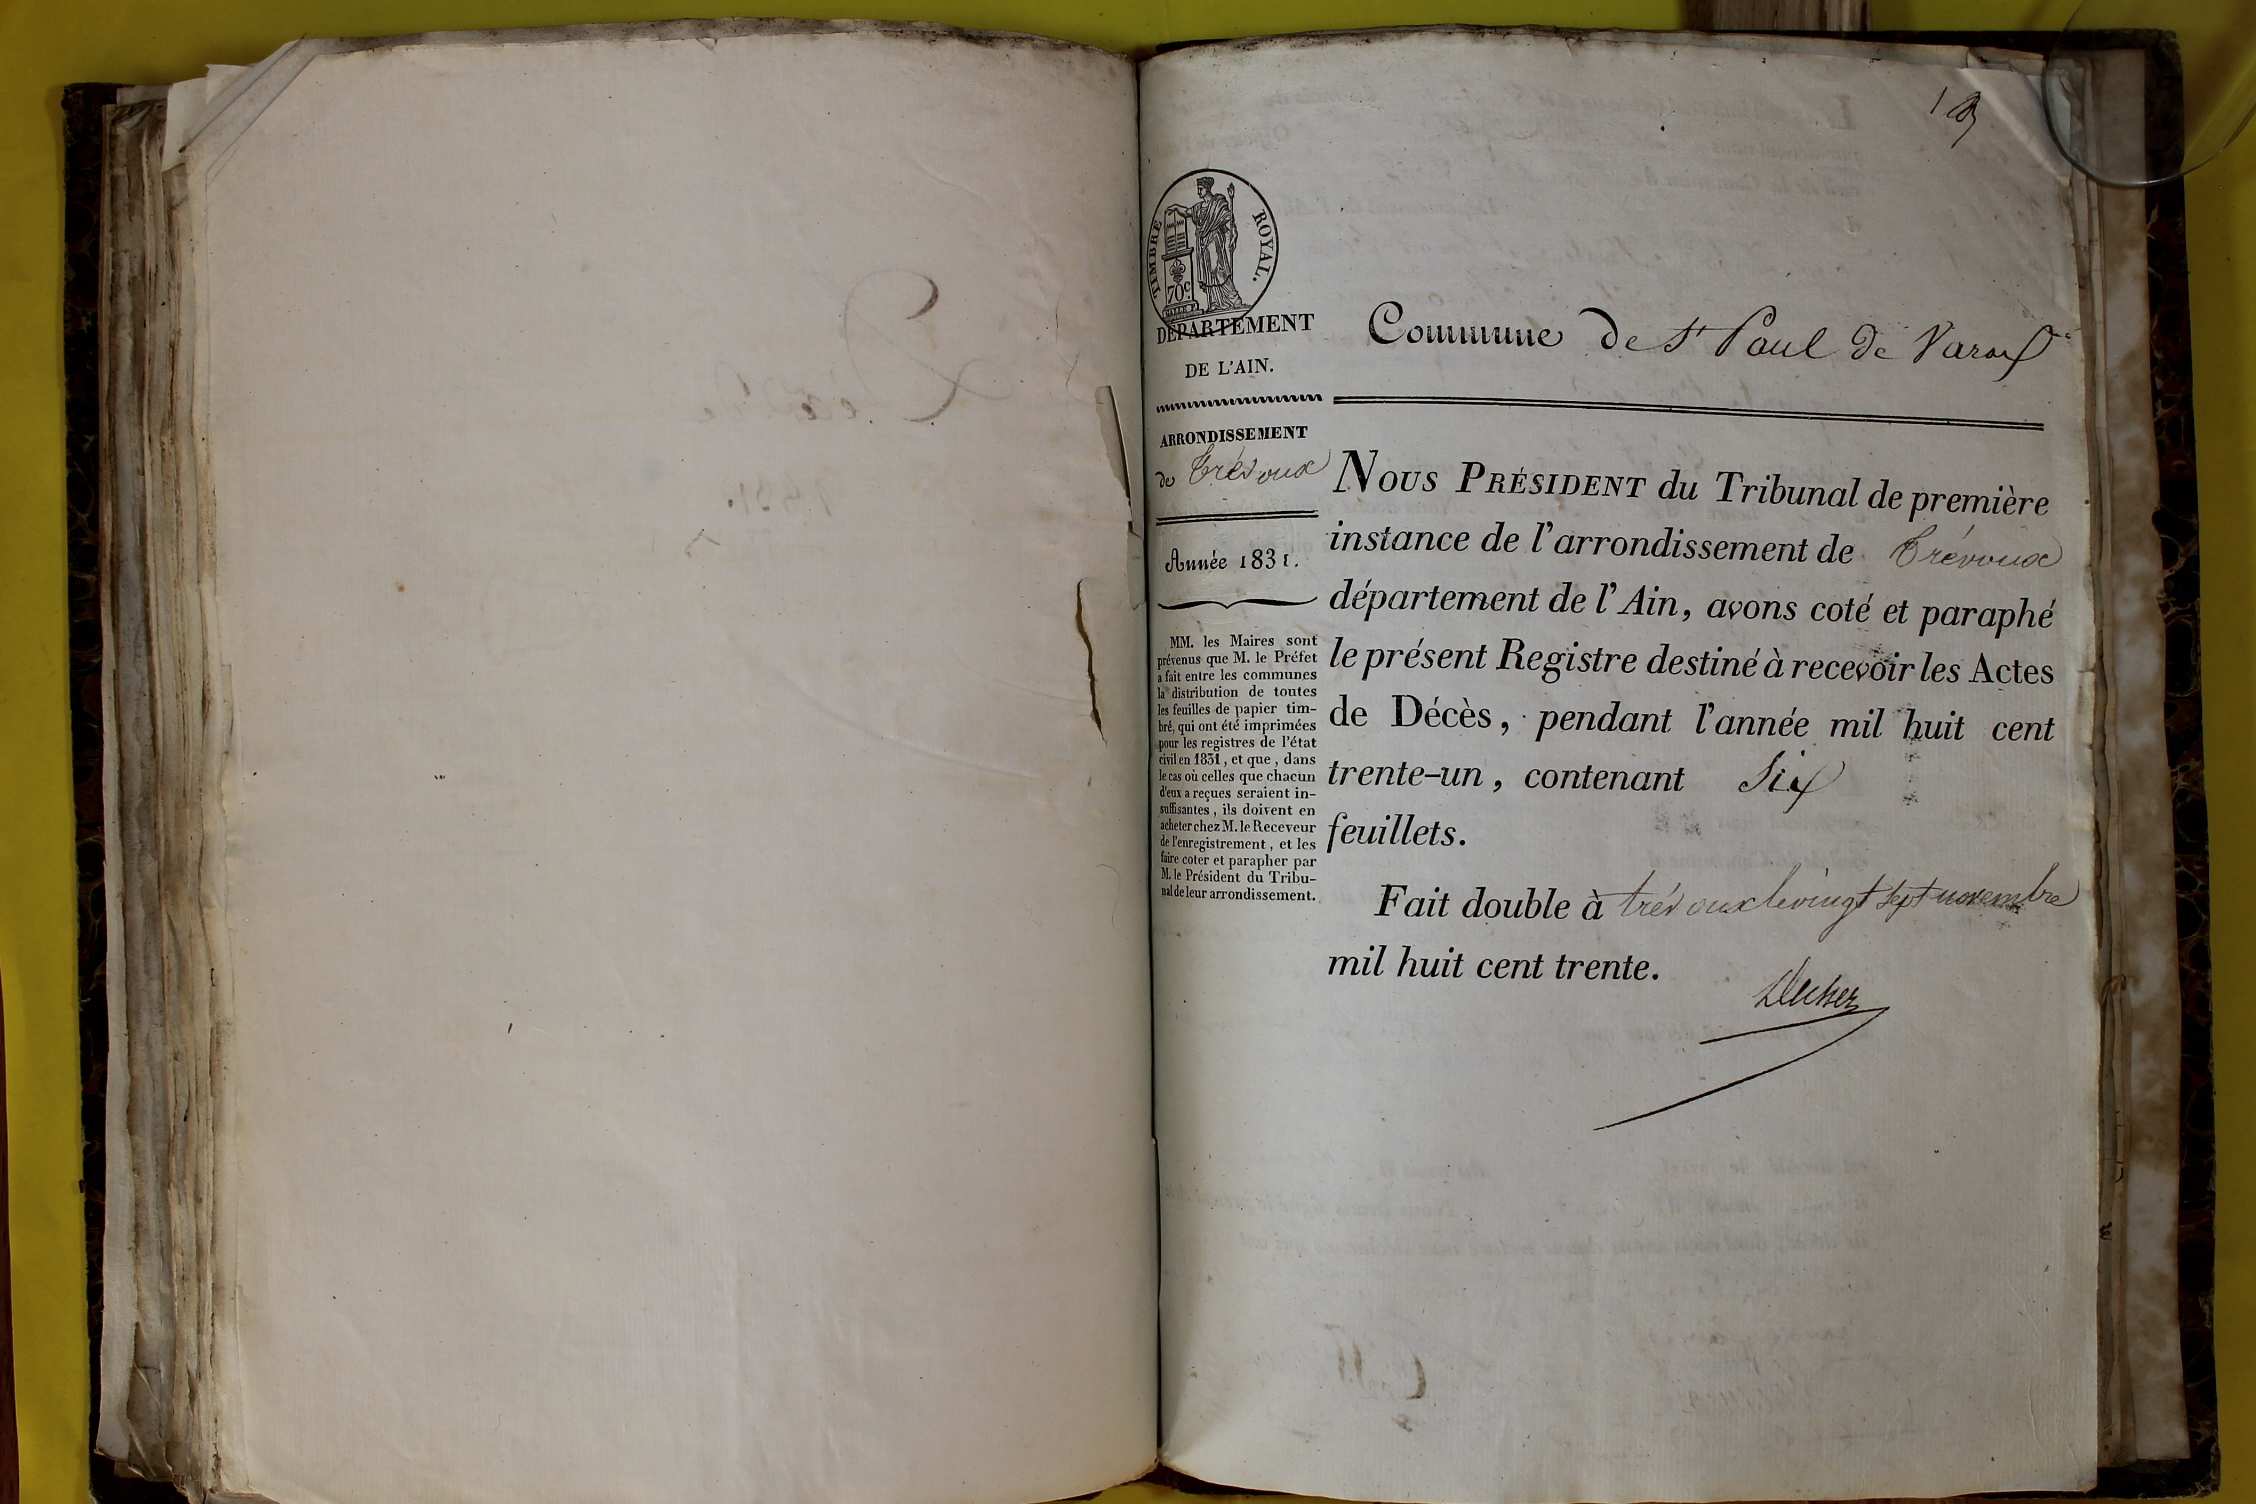 TIMBRE ROYAL.
70c.
DÉPARTEMENT
DE L'AIN.
Commune de St Paul de Varax
ARRONDISSEMENT
de Trévoux
Année 1831.
MM. les Maires sont
prévenus que M. le Préfet
a fait entre les communes
la distribution de toutes
les feuilles de papier tim-
bré, qui ont été imprimées
pour les registres de l'état
civil en 1831, et que, dans
le cas où celles que chacun
d'eux a reçues seraient in-
suffisantes, ils doivent en
acheter chez M. le Receveur
de l'enregistrement, et les
faire coter et parapher par
M. le Président du Tribu-
nal de leur arrondissement.
NOUS PRÉSIDENT du Tribunal de première
instance de l'arrondissement de Trévoux
département de l'Ain, avons coté et paraphé
le présent Registre destiné à recevoir les Actes
de Décès, pendant l'année mil huit cent
trente-un, contenant Six
feuillets.
Fait double à trévoux le vingt sept novembre
mil huit cent trente.